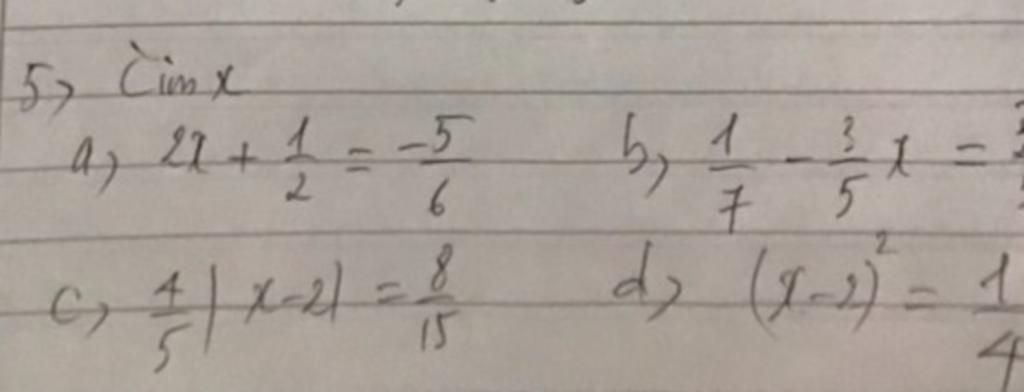 5, Tìm x
a, 2x + 1/2 = -5/6 b, 1/7 - 3/5 x =
c, 4/5 |x-2| = 8/15 d, (x-2)² = 1/4